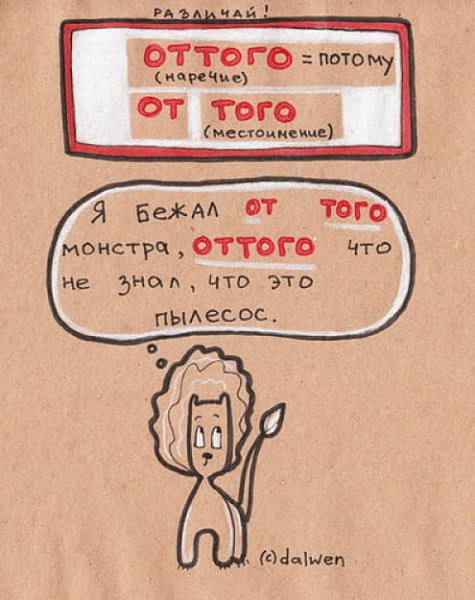 РАЗЛИЧАЙ!
ОТТОГО = ПОТОМУ
(наречие)
ОТ ТОГО
(местоимение)
Я БЕЖАЛ ОТ ТОГО
МОНСТРА, ОТТОГО ЧТО
НЕ ЗНАЛ, ЧТО ЭТО
ПЫЛЕСОС.
(c) dalwen